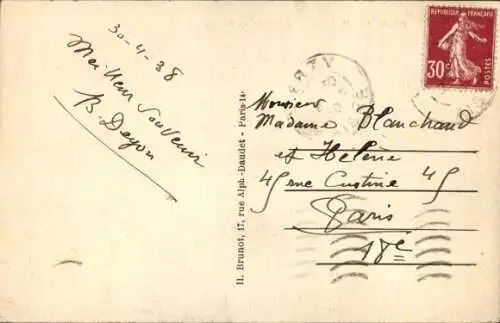 30-4-38
Meilleur Souvenir
B. Deyon
H. Brunot, 17, rue Alph-Daudet - Paris-14e
REPUBLIQUE FRANÇAISE
30c
POSTES
Monsieur
Madame Blanchaud
et Hélène
45 rue Custine 45
Paris
18e